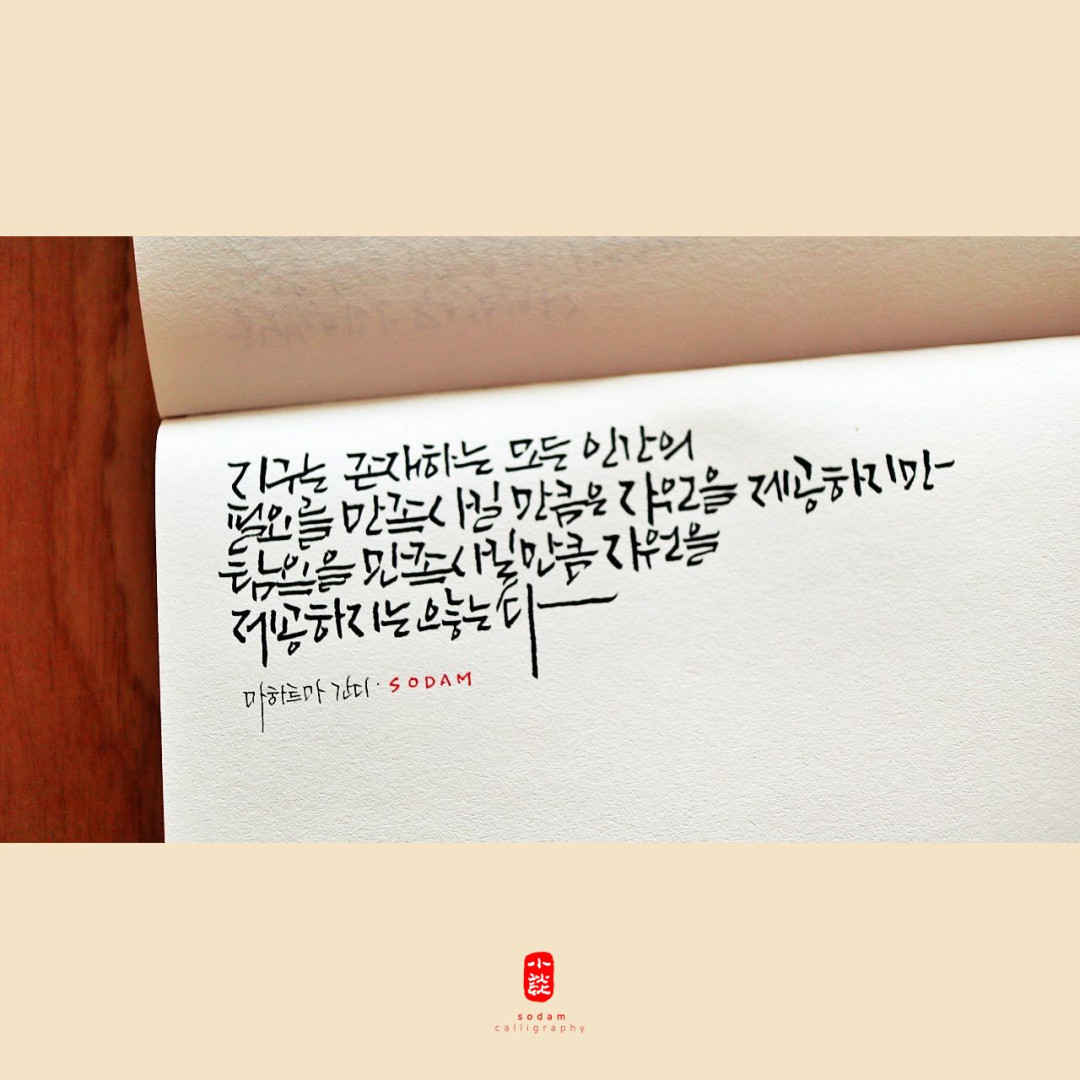 지구는 존재하는 모든 인간의
필요를 만족시킬 만큼은 자원을 제공하지만
탐욕을 만족시킬만큼 자원을
제공하지는 않는다
마하트마 간디 · SODAM
小談
sodam
calligraphy